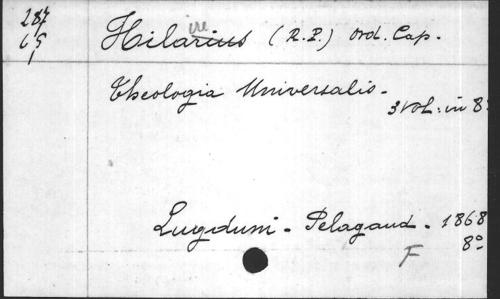 287
65
Hilarius (R.P.) Ord. Cap.
ire
Theologia Universalis.
3 vol. in 8º
Lugduni - Pelagaud - 1868
8º
F